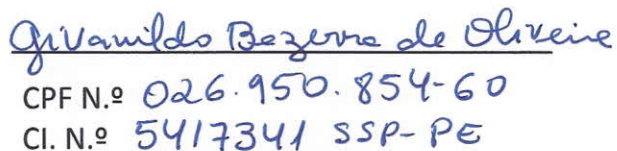 Givanildo Bezerra de Oliveira
CPF N.º 026.950.854-60
CI. N.º 5417341 SSP-PE